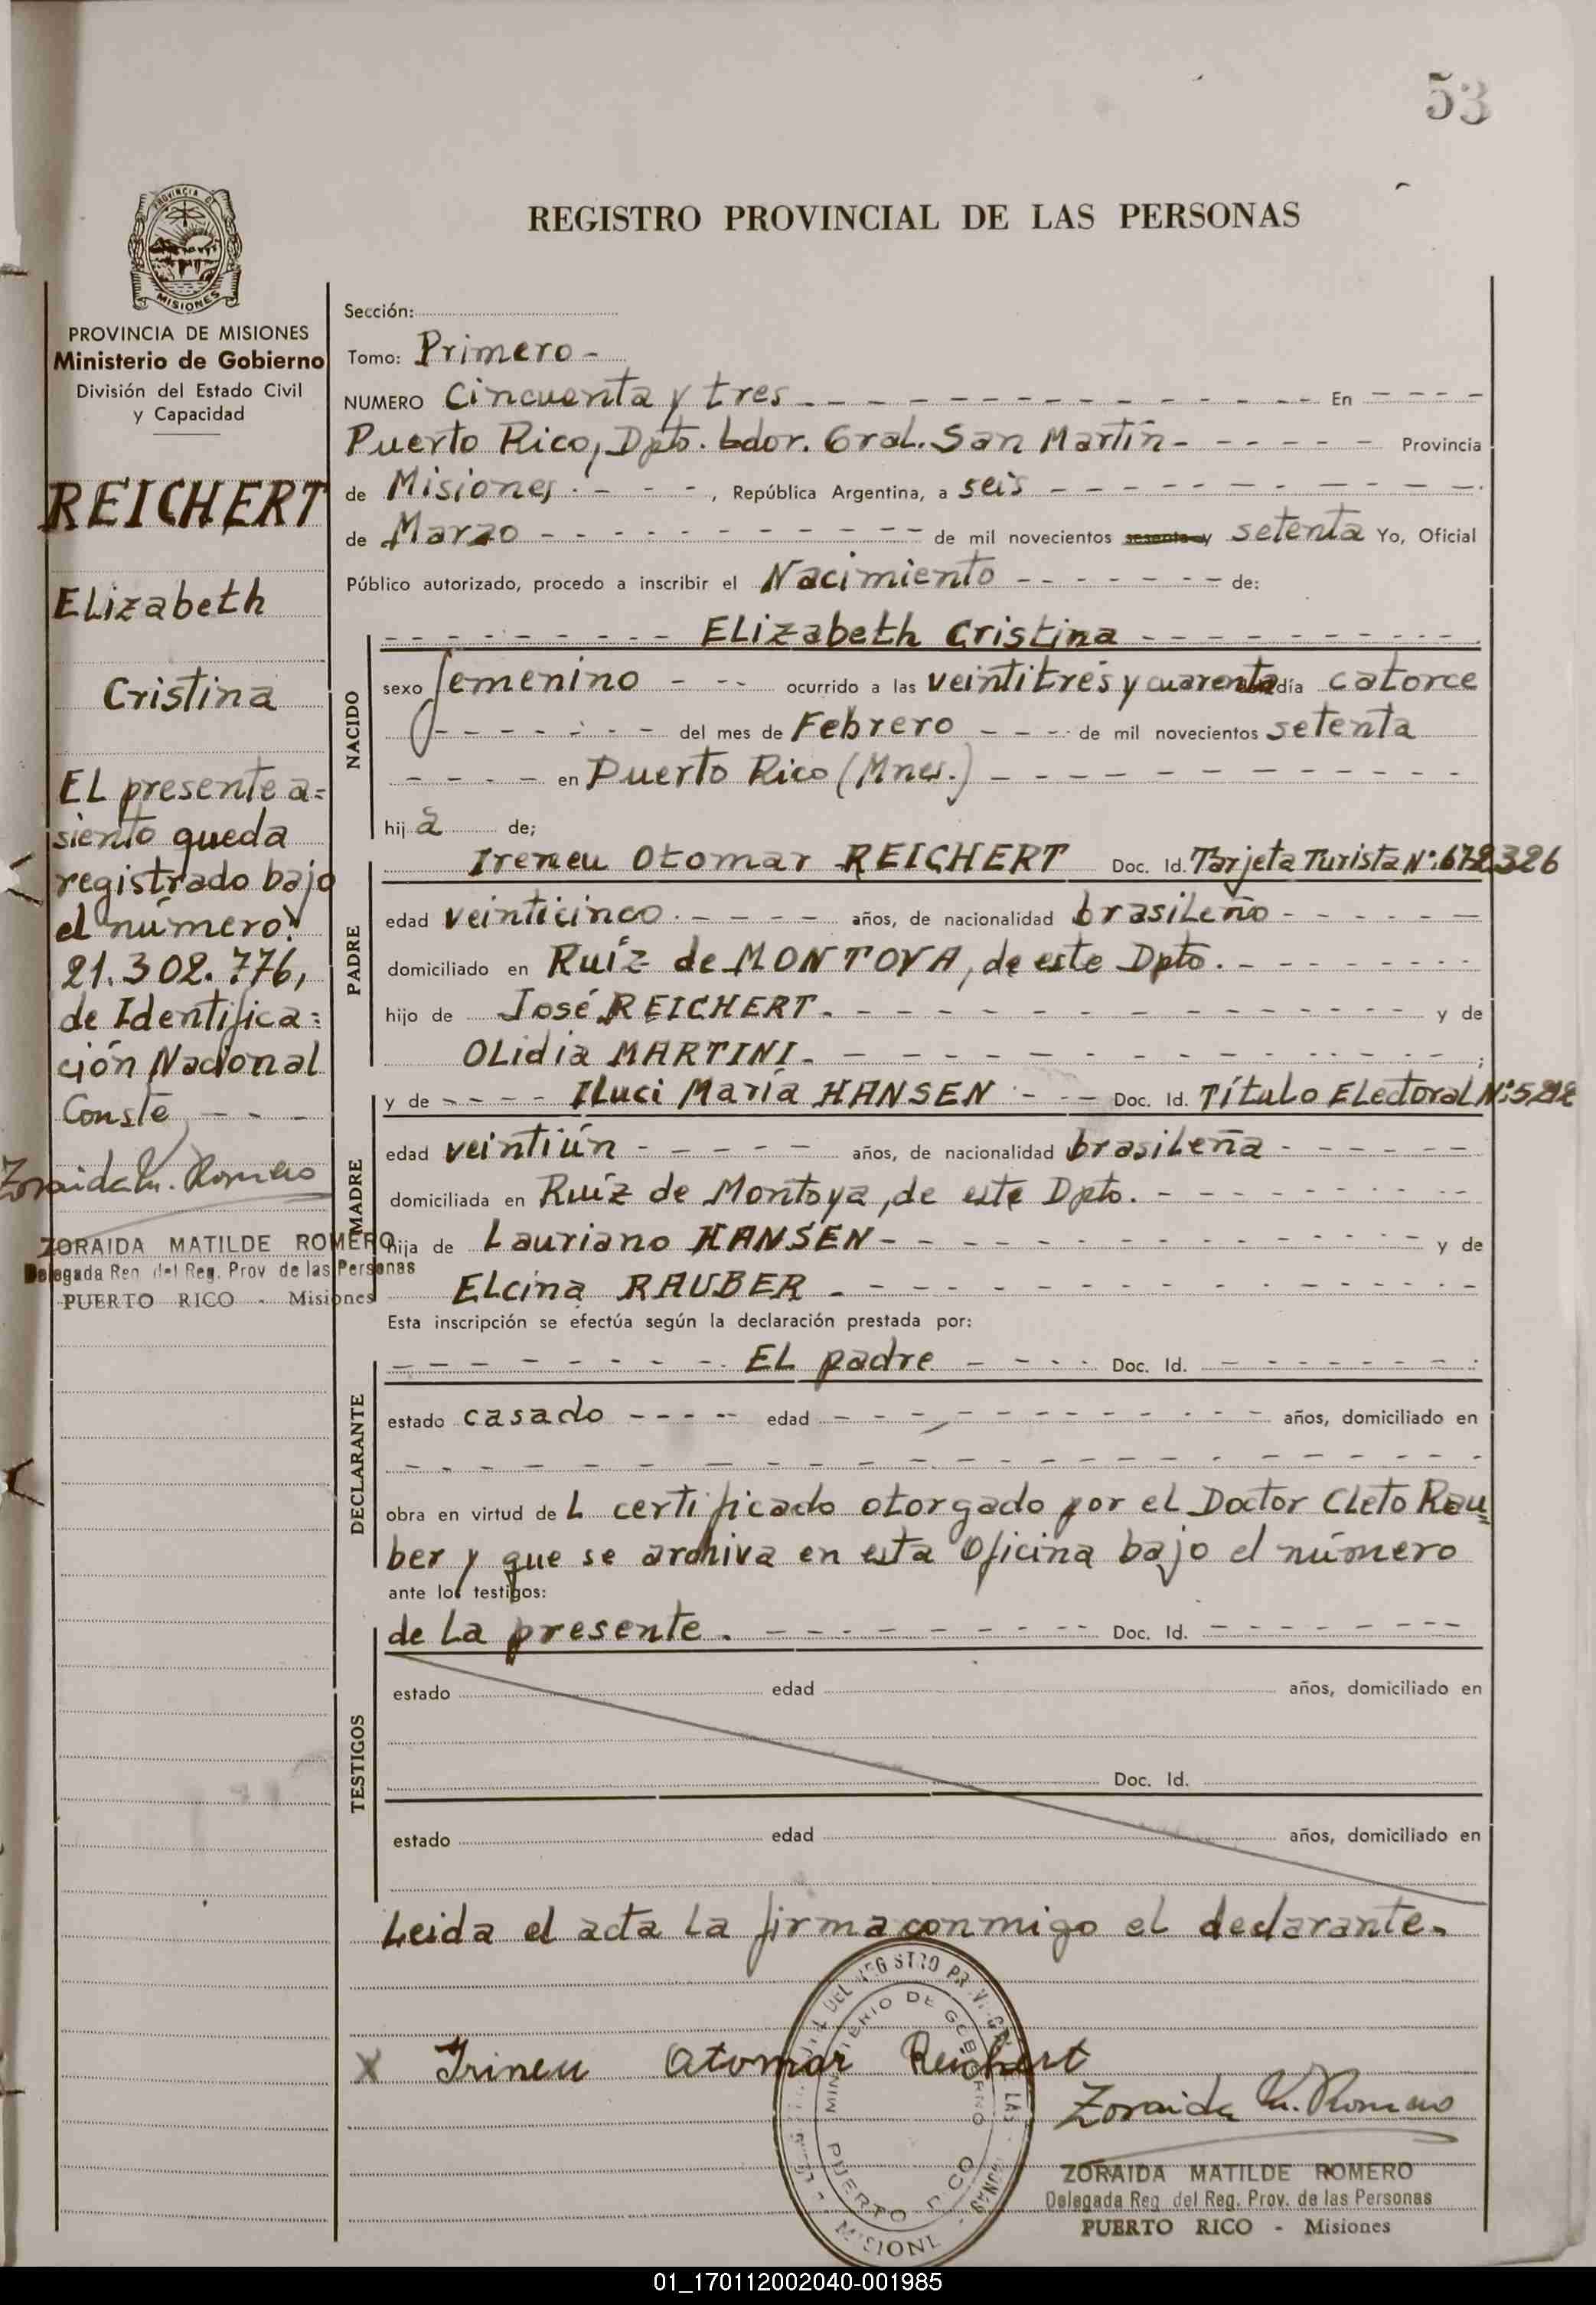 53
REGISTRO PROVINCIAL DE LAS PERSONAS
PROVINCIA DE MISIONES
PROVINCIA DE MISIONES
Ministerio de Gobierno
División del Estado Civil
y Capacidad
REICHERT
Elizabeth
Cristina
EL presente a=
siento queda
registrado bajo
el número:
21.302.776,
de Identifica=
ción Nacional
Conste
Zoraida M. Romero
ZORAIDA MATILDE ROMERO
Delegada Reg. del Reg. Prov de las Personas
PUERTO RICO - Misiones
Sección:
Tomo: Primero -
NUMERO Cincuenta y tres - - - En - - - -
Puerto Rico, Dpto. Ldor. Gral. San Martín - - - - - Provincia
de Misiones - - - , República Argentina, a seis - - -
de Marzo - - - de mil novecientos sesenta y setenta Yo, Oficial
Público autorizado, procedo a inscribir el Nacimiento - - - de:
NACIDO
- - - Elizabeth Cristina - - -
sexo femenino - - - ocurrido a las veintitrés y cuarenta día catorce
- - - del mes de Febrero - - - de mil novecientos setenta
- - - - en Puerto Rico (Mnes.) - - -
hij a de;
PADRE
Ireneu Otomar REICHERT Doc. Id. Tarjeta Turista Nº: 672326
edad veinticinco. - - - - años, de nacionalidad brasileño - - - -
domiciliado en Ruíz de MONTOYA, de este Dpto. - - -
hijo de José REICHERT. - - - y de
OLidia MARTINI. - - - ;
MADRE
y de - - - - Iluci María HANSEN - - - Doc. Id. Título Electoral Nº:
edad veintiún - - - - - años, de nacionalidad brasileña - - - -
domiciliada en Ruíz de Montoya, de este Dpto. - - -
hija de Lauriano HANSEN - - - y de
Elcina RAUBER - - -
Esta inscripción se efectúa según la declaración prestada por:
DECLARANTE
- - - EL padre - - - - Doc. Id. - - -
estado casado - - - - edad - - - años, domiciliado en
- - -
obra en virtud de L certificado otorgado por el Doctor Cleto Rau=
ber y que se archiva en esta Oficina bajo el número
ante los testigos:
de la presente. - - - Doc. Id. - - -
TESTIGOS
estado edad años, domiciliado en
Doc. Id.
estado edad años, domiciliado en
Leida el acta la firma conmigo el declarante.
X Irineu Otomar Reichert
MINISTERIO DE GOBIERNO
PUERTO RICO
Zoraida M. Romero
ZORAIDA MATILDE ROMERO
Delegada Reg. del Reg. Prov. de las Personas
PUERTO RICO - Misiones
01_170112002040-001985